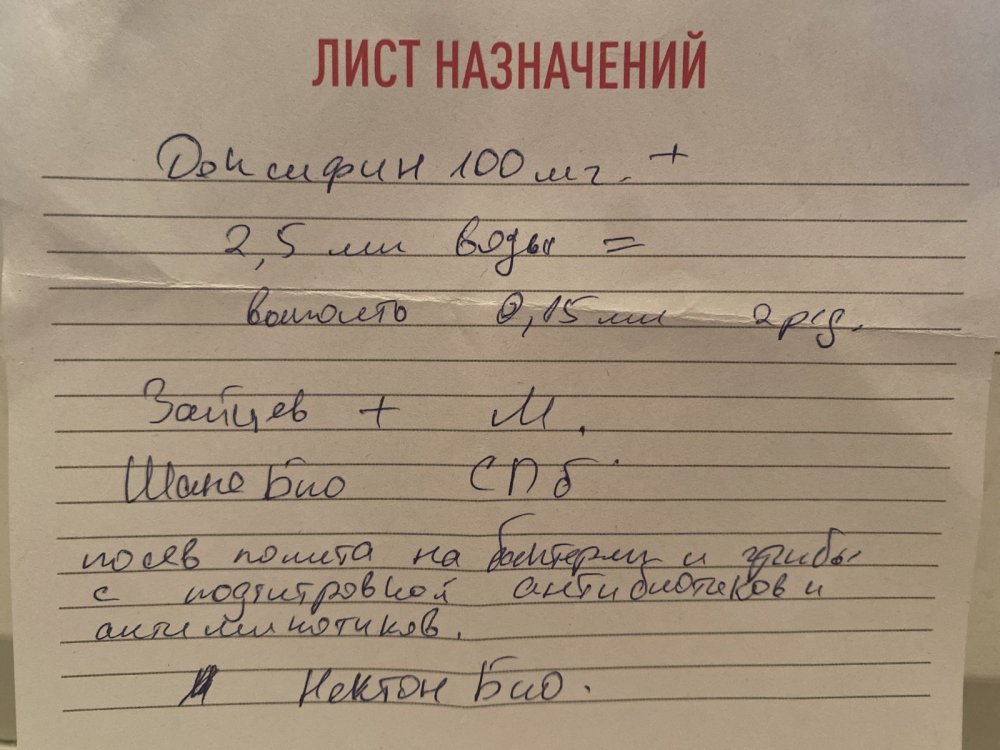 ЛИСТ НАЗНАЧЕНИЙ
100 мг. +
2,5 мл воды =
0,15 мл 2 р/д.
Зайцев + М.
Шанс Био СПб
посев помета на бактерии и грибы
с подтитровкой антибиотиков и
антимикотиков.
Нектон Био.